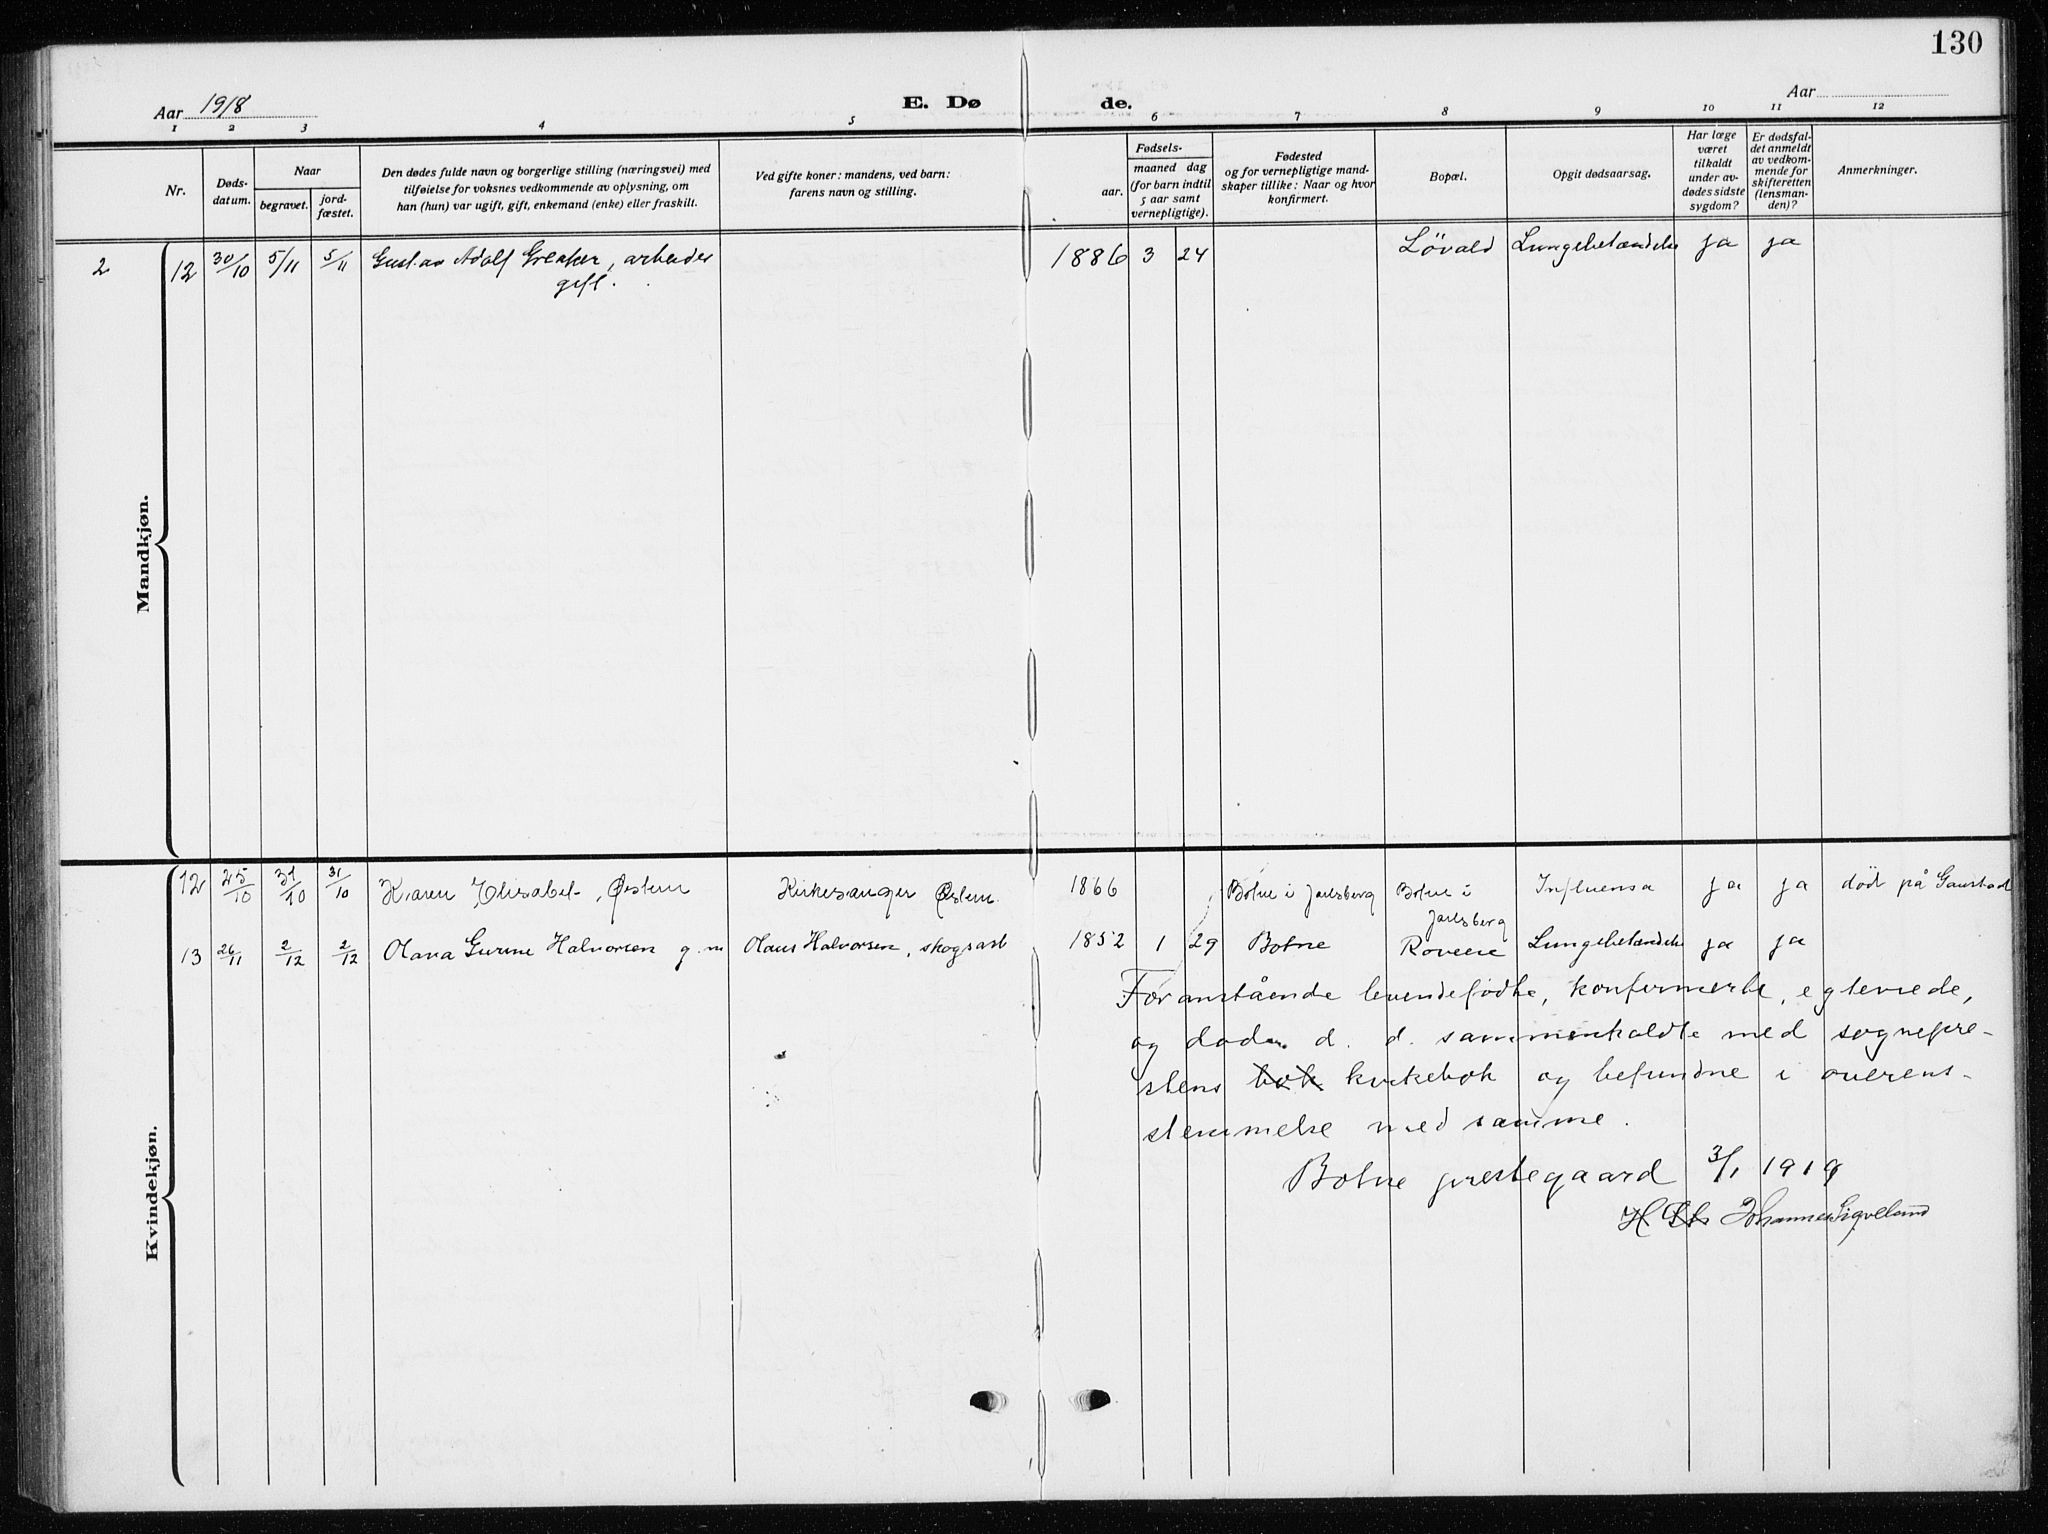 130
Aar 1918
E. Døde.
Aar
1 2 3 4 5 6 7 8 9 10 11 12
Nr.
Døds-
datum.
Naar
begravet.
jord-
fæstet.
Den dødes fulde navn og borgerlige stilling (næringsvei) med
tilføielse for voksnes vedkommende av oplysning, om
han (hun) var ugift, gift, enkemand (enke) eller fraskilt.
Ved gifte koner: mandens, ved barn:
farens navn og stilling.
Fødsels-
aar.
maaned dag
(for barn indtil
5 aar samt
vernepligtige).
Fødested
og for vernepligtige mand-
skaper tillike: Naar og hvor
konfirmert.
Bopæl.
Opgit dødsaarsag.
Har læge
været
tilkaldt
under av-
dødes sidste
sygdom?
Er dødsfal-
det anmeldt
av vedkom-
mende for
skifteretten
(lensman-
den)?
Anmerkninger.
Mandkjøn.
2 12 30/10 5/11 5/11 Gustav Adolf Greaker, arbeider 1886 3 24 Løvald Lungebetændelse ja ja
gift.
Kvindekjøn.
12 25/10 31/10 31/10 Karen Elisabet Østern Kirkesanger Østern. 1866 Botne i Jarlsberg Botne i Influensa ja ja død på Gaustad
Jarlsberg
13 26/11 2/12 2/12 Olava Gurine Halvorsen g. m Olaus Halvorsen, skogsarb 1852 1 29 Botne Lungebetændelse ja ja
Foranstående levendefødte, konfirmerte, egteviede,
og døde d. d. sammenholdte med sognepre-
stens bok kirkebok og befundne i overens-
stemmelse med samme.
Botne prestegaard 3/1 1919
Johannes Sigveland